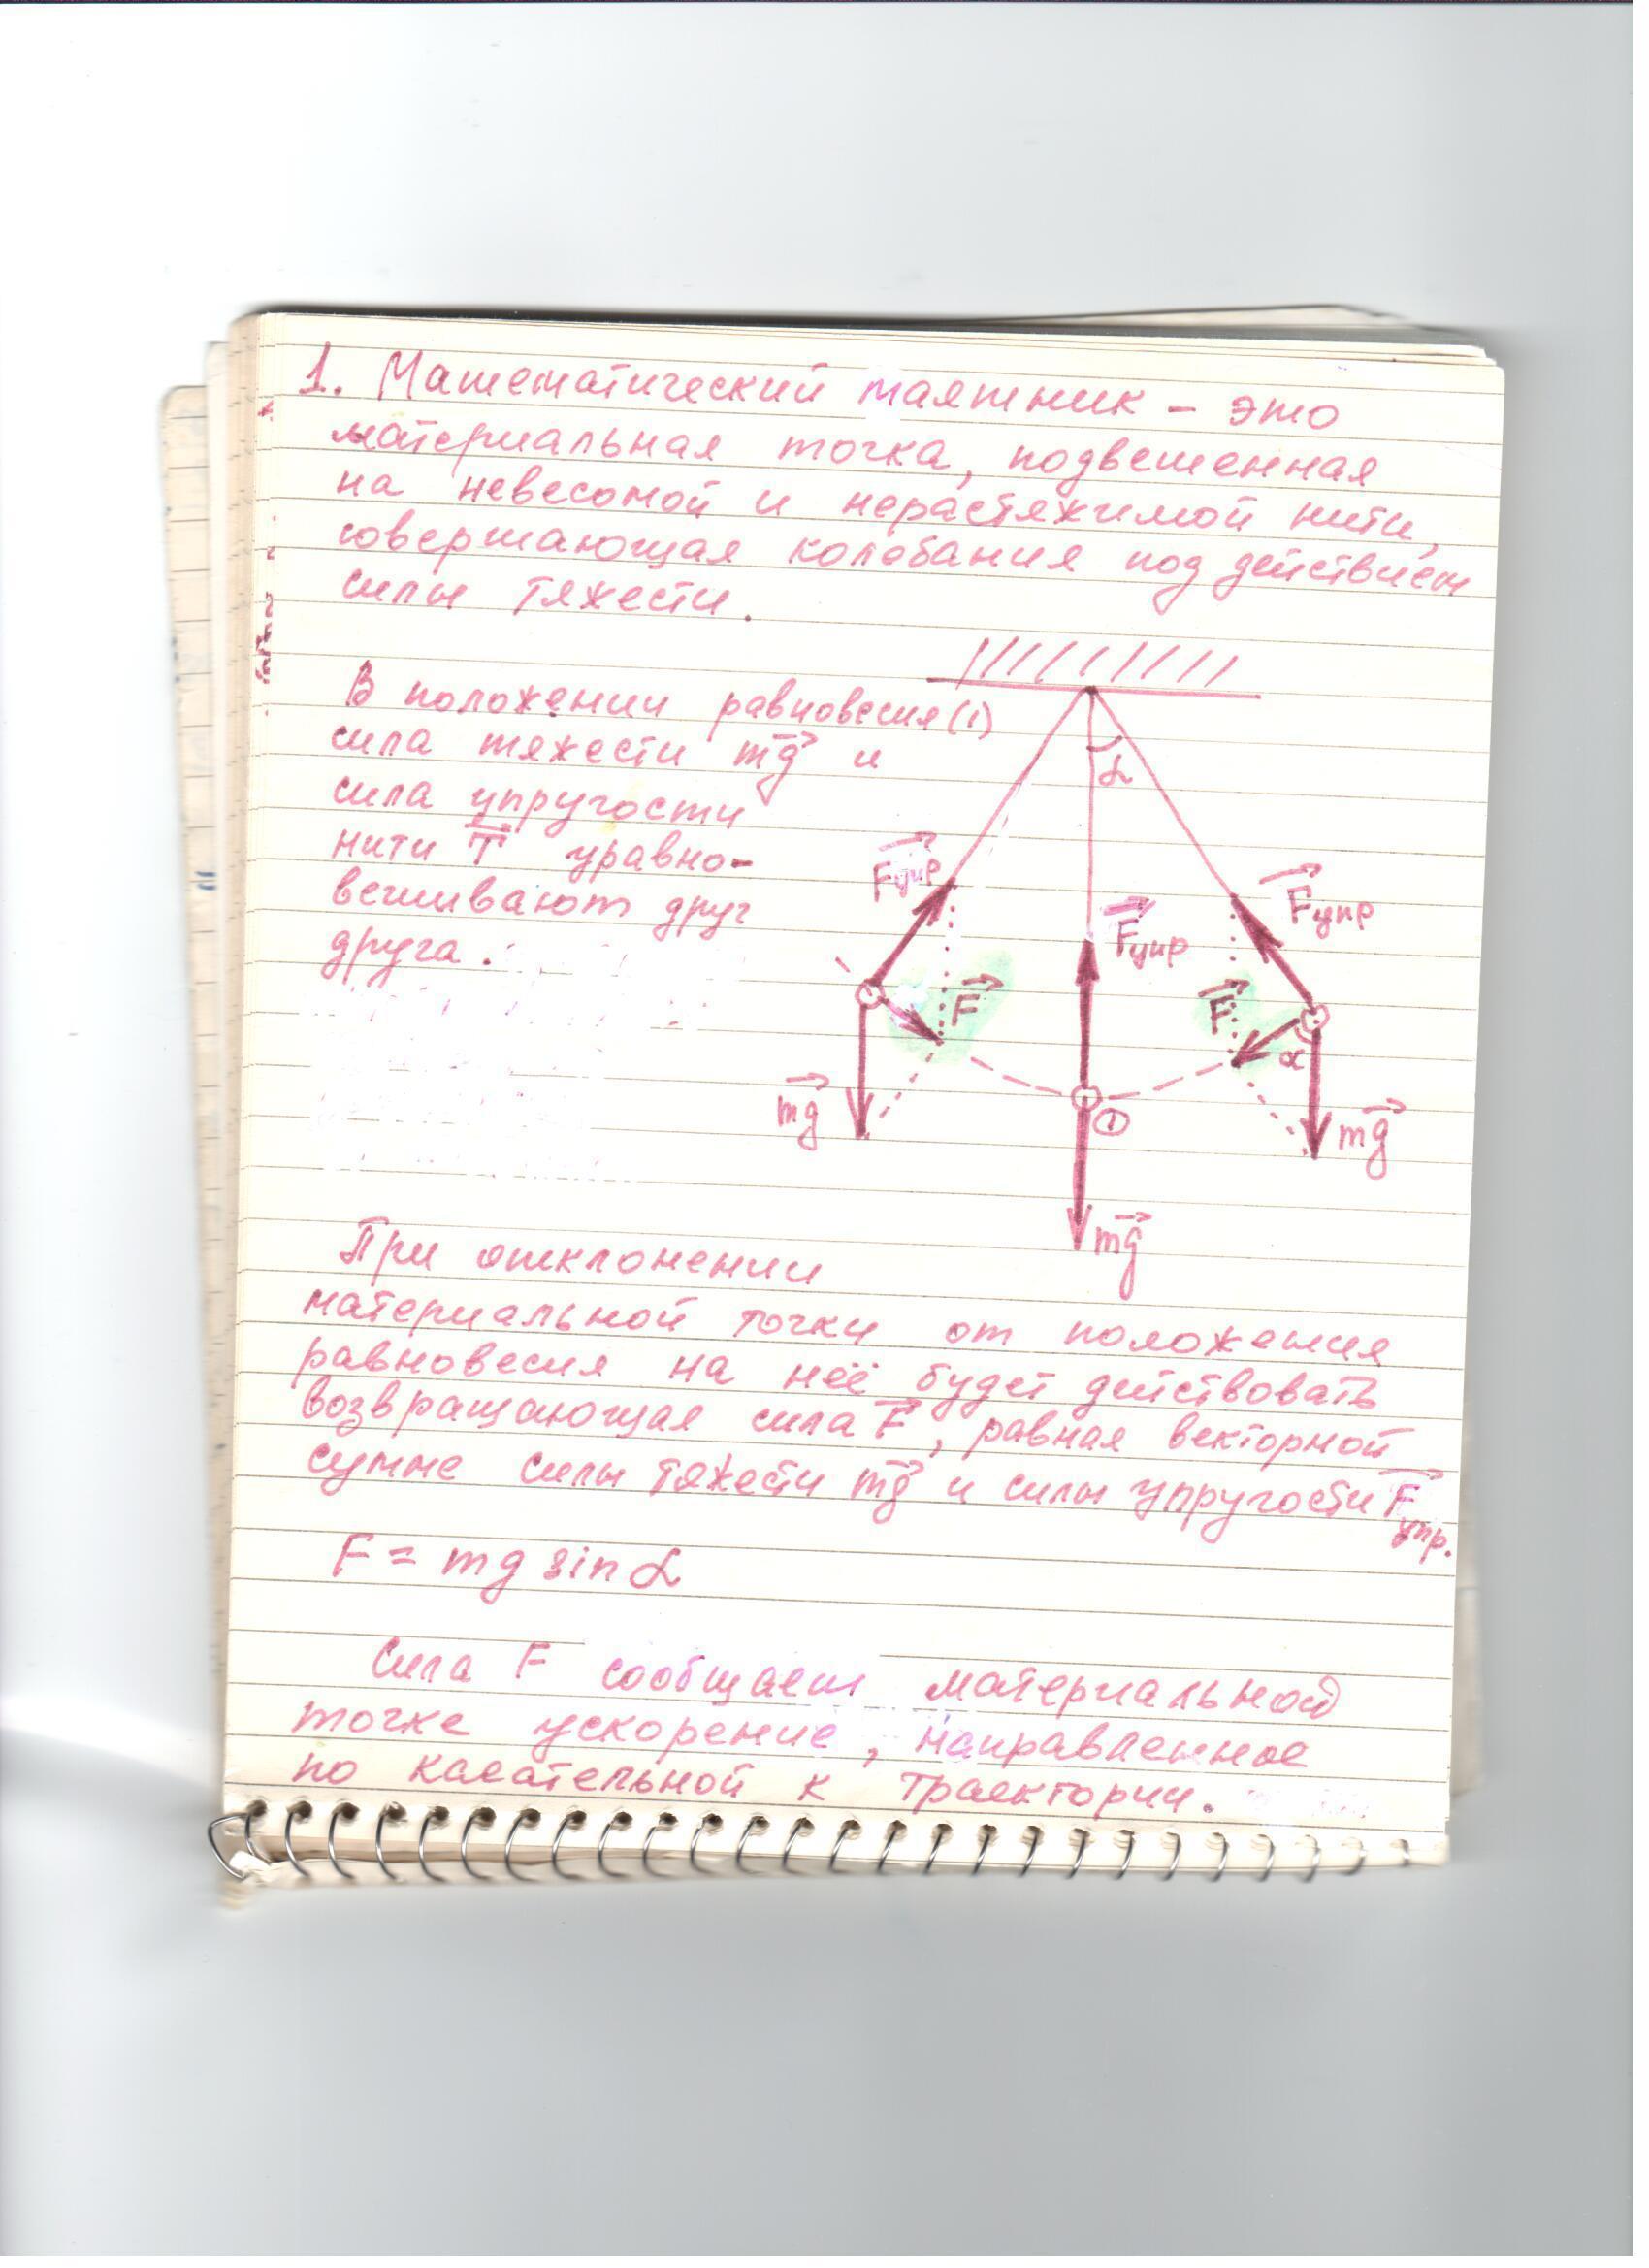 1. Математический маятник – это
материальная точка, подвешенная
на невесомой и нерастяжимой нити,
совершающая колебания под действием
силы тяжести.
В положении равновесия (1)
сила тяжести mg⃗ и
сила упругости
нити T⃗ уравно-
вешивают друг
друга.
α
F⃗упр
F⃗упр
F⃗упр
F⃗
F⃗
α
mg⃗
①
mg⃗
mg⃗
При отклонении
материальной точки от положения
равновесия на неё будет действовать
возвращающая сила F⃗, равная векторной
сумме силы тяжести mg⃗ и силы упругости F⃗упр.
F = mg sin α
Сила F сообщает материальной
точке ускорение, направленное
по касательной к траектории.